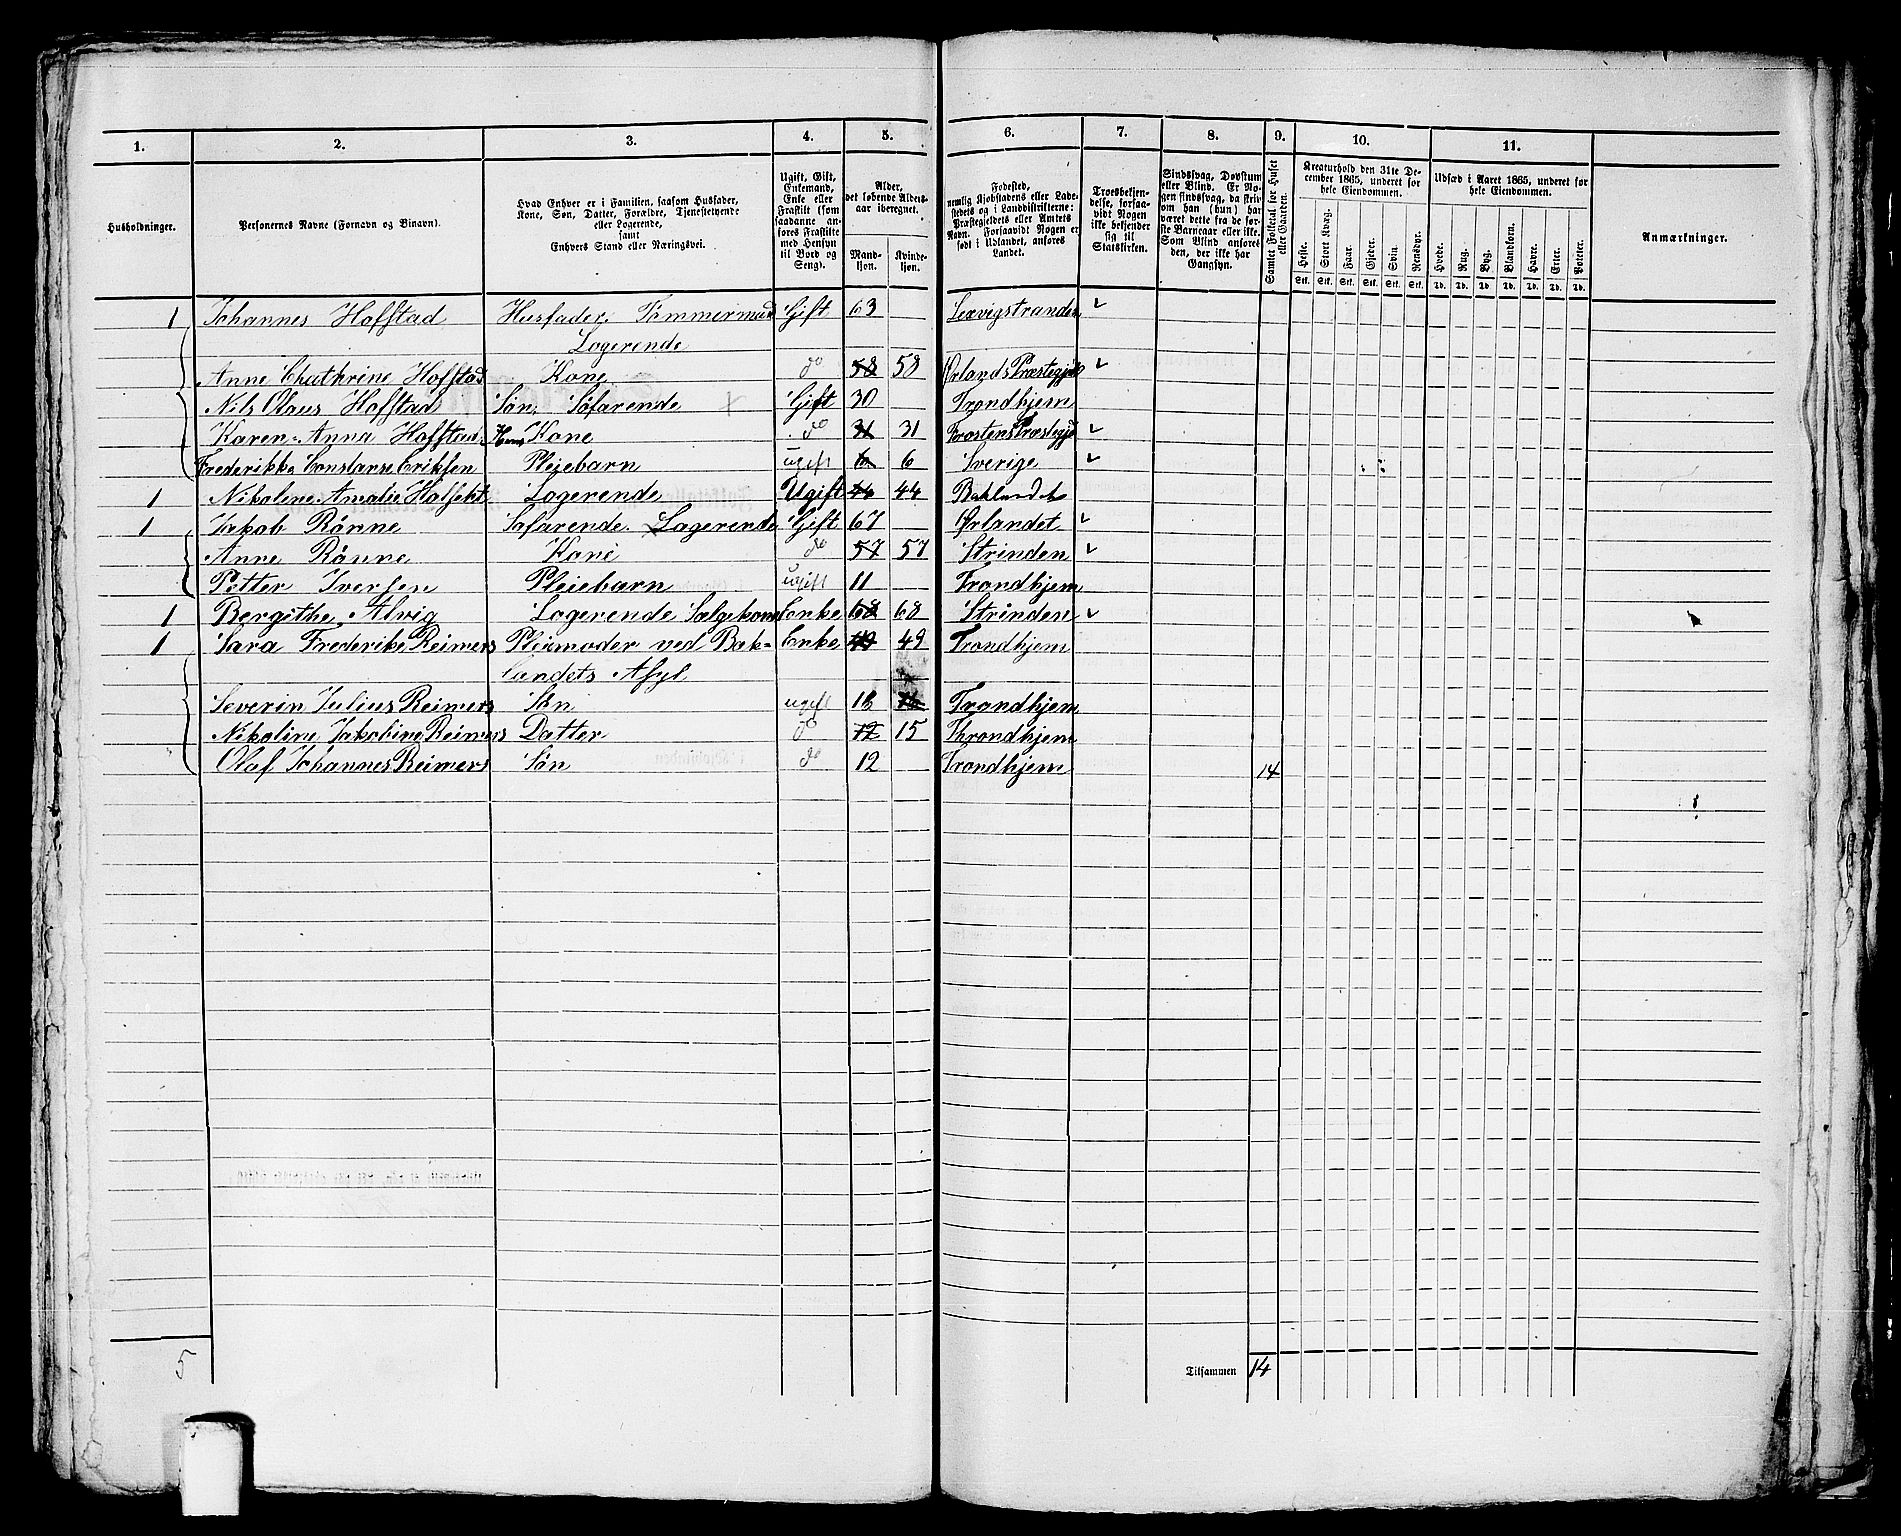 1. 2. 3. 4. 5. 6. 7. 8. 9. 10. 11.
Husholdninger.
Personernes Navne (Fornavn og Binavn).
Hvad Enhver er i Familien, saasom Husfader,
Kone, Søn, Datter, Forældre, Tjenestetyende
eller Logerende,
samt
Enhvers Stand eller Næringsvei.
Ugift, Gift,
Enkemand,
Enke eller
Fraskilt (som
saadanne an-
føres Fraskilte
med Hensyn
til Bord og
Seng).
Alder,
det løbende Alders-
aar iberegnet.
Mand-
kjøn.
Kvinde-
kjøn.
Fødested,
nemlig Kjøbstadens eller Lade-
stedets og i Landdistrikterne:
Præstegjeldets eller Amtets
Navn. Forsaavidt Nogen er
født i Udlandet, anføres
Landet.
Troesbekjen-
delse, forsaa-
vidt Nogen
ikke bekjender
sig til
Statskirken.
Sindssvag, Døvstum
eller Blind. Er No-
gen sindssvag, da skriv
om han (hun) har
været dette fra de før-
ste Barneaar eller ikke.
Som Blind anføres
den, der ikke har
Gangsyn.
Samlet Folketal for Huset
eller Gaarden.
Kreaturhold den 31te De-
cember 1865, underet for
hele Eiendommen.
Heste. Stort Kvæg. Faar. Gjeder. Svin. Rensdyr.
Stk. Stk. Stk. Stk. Stk. Stk.
Udsæd i Aaret 1865, underet for
hele Eiendommen.
Hvede. Rug. Byg. Blandkorn. Havre. Erter. Poteter.
Td. Td. Td. Td. Td. Td. Td.
Anmærkninger.
1 Johannes Hofstad Husfader Tømmermand Gift 63 Lexvigstranden
Logerende
Anne Chathrine Hofstad Kone do 58 58 Ørlands Præstegjæld
Nils Olaus Hofstad Søn, Søfarende Gift 30 Trondhjem
Karen Anna Hofstad Hans Kone do 31 31 Frostens Præstegj
Frederikke Constanse Eriksen Pleiebarn ugift 6 6 Sverige
1 Nikoline Amalie Logerende Ugift 44 44 Baklandet
1 Jakob Rönne Søfarende. Logerende Gift 67 Ørlandet
Anne Rönne Kone do 57 57 Strinden
Petter Iversen Pleiebarn ugift 11 Trondhjem
1 Bergithe Alvig Logerende Sælgekone Enke 68 68 Strinden
1 Sara Frederike Reimers Pleiemoder ved Bak- Enke 49 49 Trondhjem
landets Asyl
Severin Julius Reimers Søn ugift 18 Trondhjem
Nikoline Jakobine Reimers Datter do 12 15 Throndhjem
Olaf Johannes Reimers Søn do 12 Trondhjem 14
5
Tilsammen 14